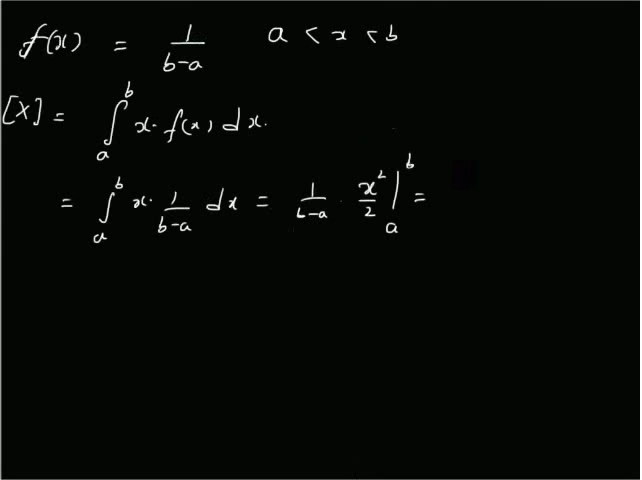 f(x) = 1/(b-a) a < x < b
[X] = ∫_a^b x. f(x) dx.
= ∫_a^b x. 1/(b-a) dx = 1/(b-a) . x²/2 |_a^b =